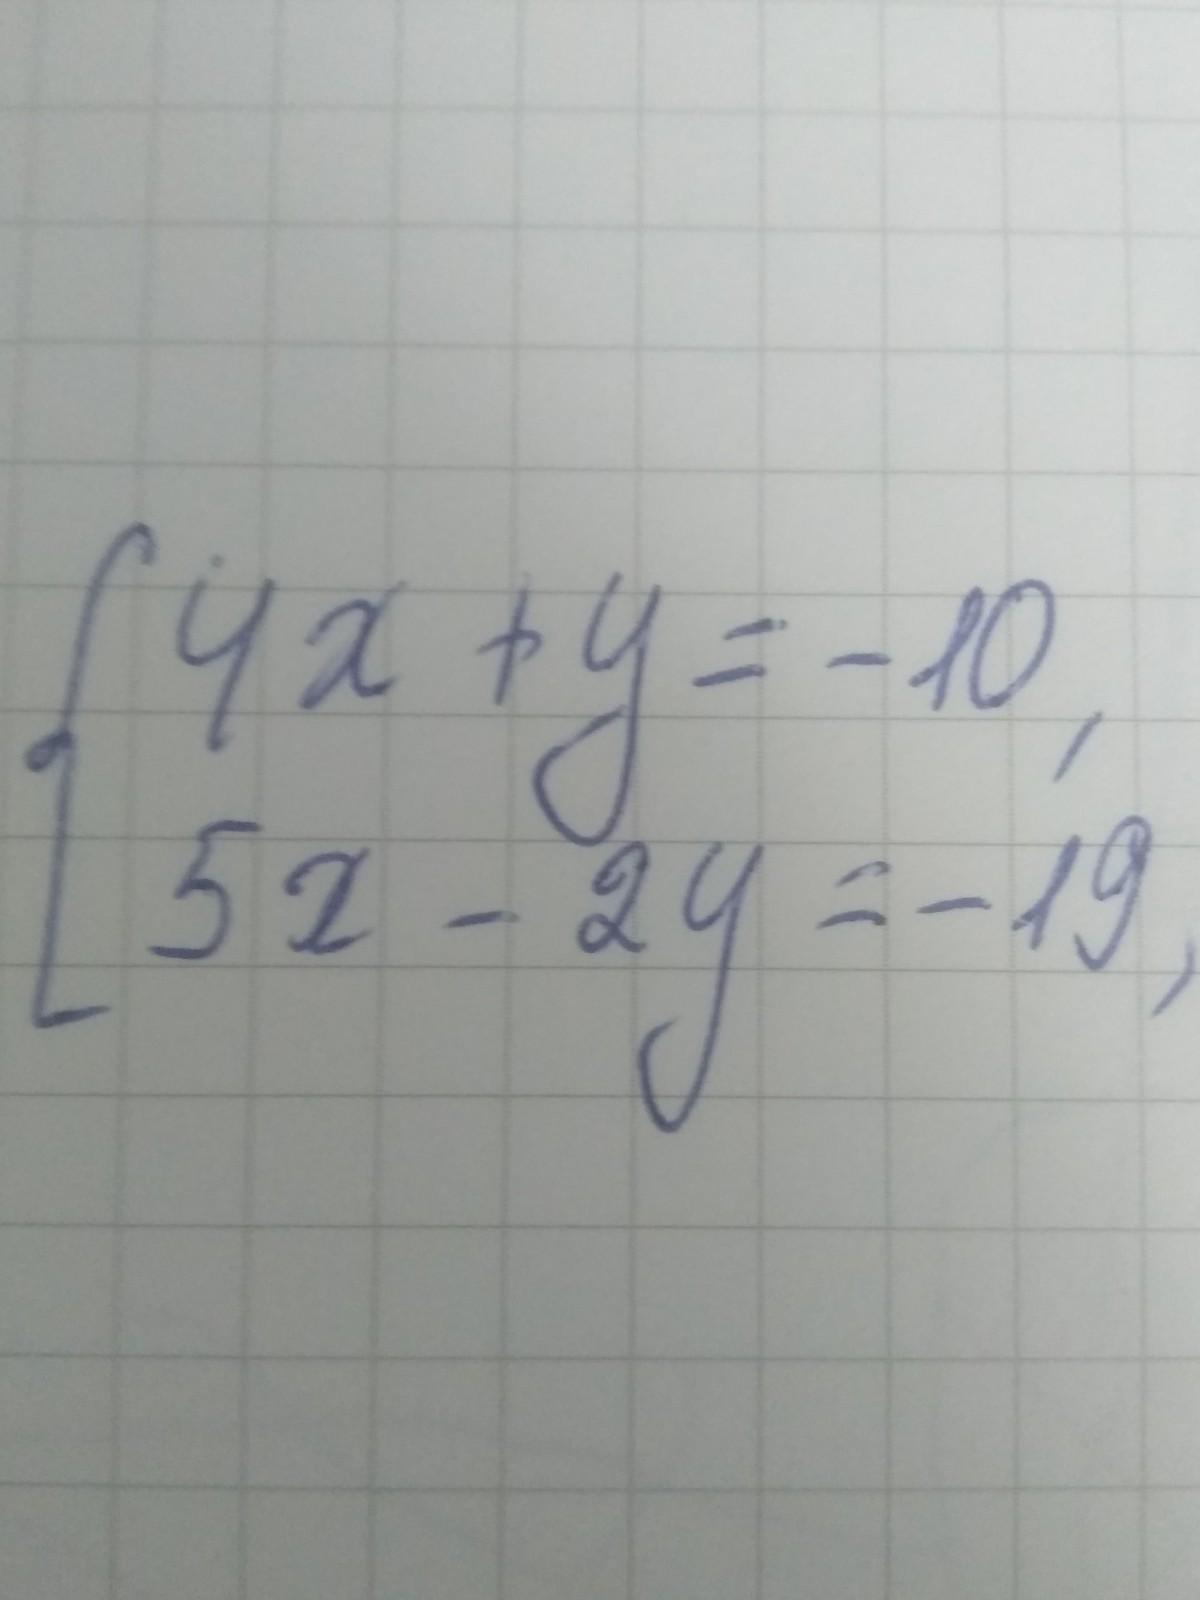 4x + y = -10,
5x - 2y = -19,